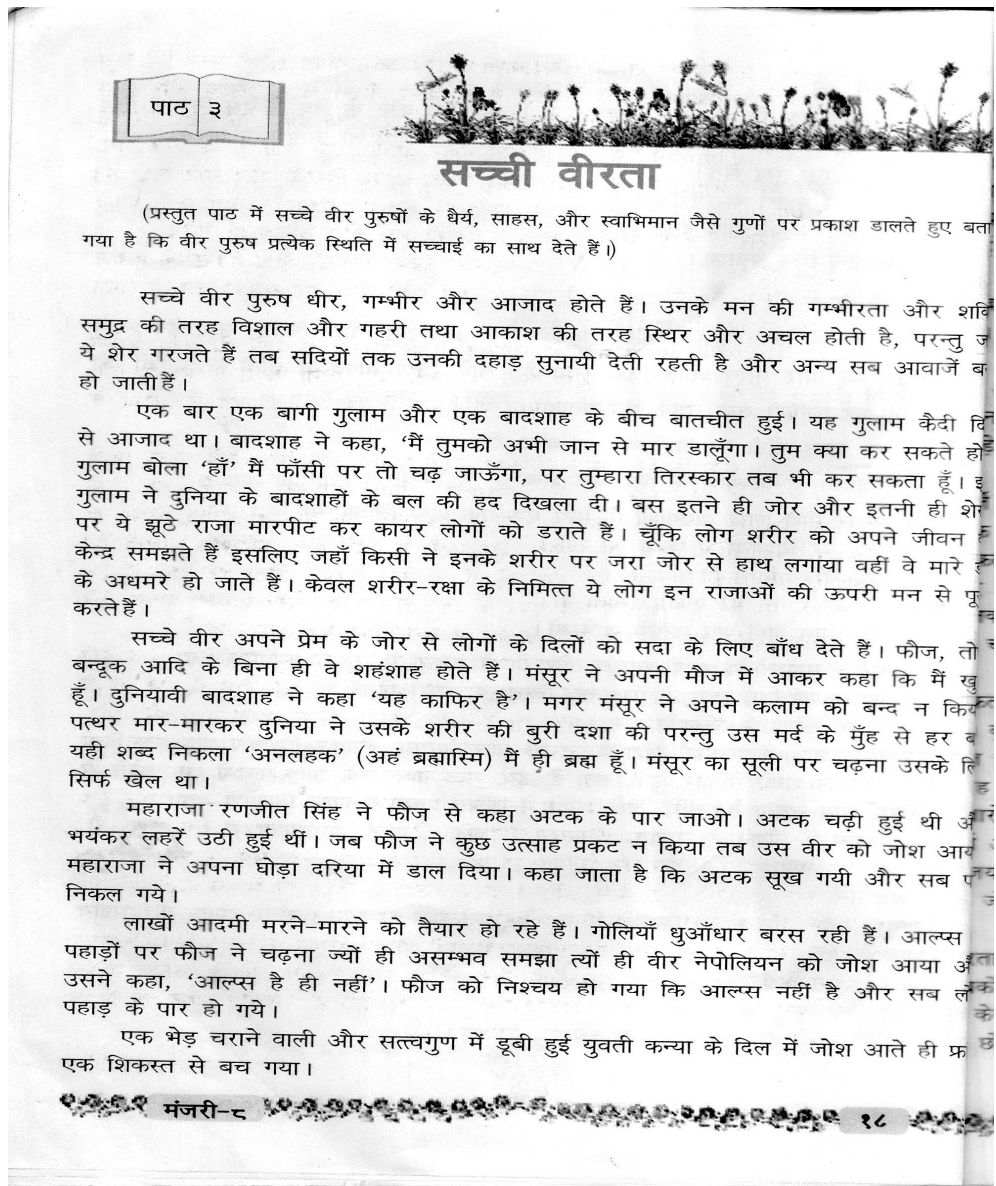 पाठ ३
सच्ची वीरता
(प्रस्तुत पाठ में सच्चे वीर पुरुषों के धैर्य, साहस, और स्वाभिमान जैसे गुणों पर प्रकाश डालते हुए बता
गया है कि वीर पुरुष प्रत्येक स्थिति में सच्चाई का साथ देते हैं।)
सच्चे वीर पुरुष धीर, गम्भीर और आजाद होते हैं। उनके मन की गम्भीरता और
समुद्र की तरह विशाल और गहरी तथा आकाश की तरह स्थिर और अचल होती है, परन्तु
ये शेर गरजते हैं तब सदियों तक उनकी दहाड़ सुनायी देती रहती है और अन्य सब आवाजें
हो जाती हैं।
एक बार एक बागी गुलाम और एक बादशाह के बीच बातचीत हुई। यह गुलाम कैदी
से आजाद था। बादशाह ने कहा, ‘मैं तुमको अभी जान से मार डालूँगा। तुम क्या कर सकते हो
गुलाम बोला ‘हाँ’ मैं फाँसी पर तो चढ़ जाऊँगा, पर तुम्हारा तिरस्कार तब भी कर सकता हूँ।
गुलाम ने दुनिया के बादशाहों के बल की हद दिखला दी। बस इतने ही जोर और इतनी ही
पर ये झूठे राजा मारपीट कर कायर लोगों को डराते हैं। चूँकि लोग शरीर को अपने जीवन
केन्द्र समझते हैं इसलिए जहाँ किसी ने इनके शरीर पर जरा जोर से हाथ लगाया वहीं वे मारे
के अधमरे हो जाते हैं। केवल शरीर-रक्षा के निमित्त ये लोग इन राजाओं की ऊपरी मन से
करते हैं।
सच्चे वीर अपने प्रेम के जोर से लोगों के दिलों को सदा के लिए बाँध देते हैं। फौज, तो
बन्दूक आदि के बिना ही वे शहंशाह होते हैं। मंसूर ने अपनी मौज में आकर कहा कि मैं खु
हूँ। दुनियावी बादशाह ने कहा ‘यह काफिर है’। मगर मंसूर ने अपने कलाम को बन्द न
पत्थर मार-मारकर दुनिया ने उसके शरीर की बुरी दशा की परन्तु उस मर्द के मुँह से हर ब
यही शब्द निकला ‘अनलहक’ (अहं ब्रह्मास्मि) मैं ही ब्रह्म हूँ। मंसूर का सूली पर चढ़ना उसके
सिर्फ खेल था।
महाराजा रणजीत सिंह ने फौज से कहा अटक के पार जाओ। अटक चढ़ी हुई थी
भयंकर लहरें उठी हुई थीं। जब फौज ने कुछ उत्साह प्रकट न किया तब उस वीर को जोश आय
महाराजा ने अपना घोड़ा दरिया में डाल दिया। कहा जाता है कि अटक सूख गयी और सब
निकल गये।
लाखों आदमी मरने-मारने को तैयार हो रहे हैं। गोलियाँ धुआँधार बरस रही हैं। आल्प्स
पहाड़ों पर फौज ने चढ़ना ज्यों ही असम्भव समझा त्यों ही वीर नेपोलियन को जोश आया
उसने कहा, ‘आल्प्स है ही नहीं’। फौज को निश्चय हो गया कि आल्प्स नहीं है और सब लो
पहाड़ के पार हो गये।
एक भेड़ चराने वाली और सत्त्वगुण में डूबी हुई युवती कन्या के दिल में जोश आते ही फ्र
एक शिकस्त से बच गया।
मंजरी-८
१८